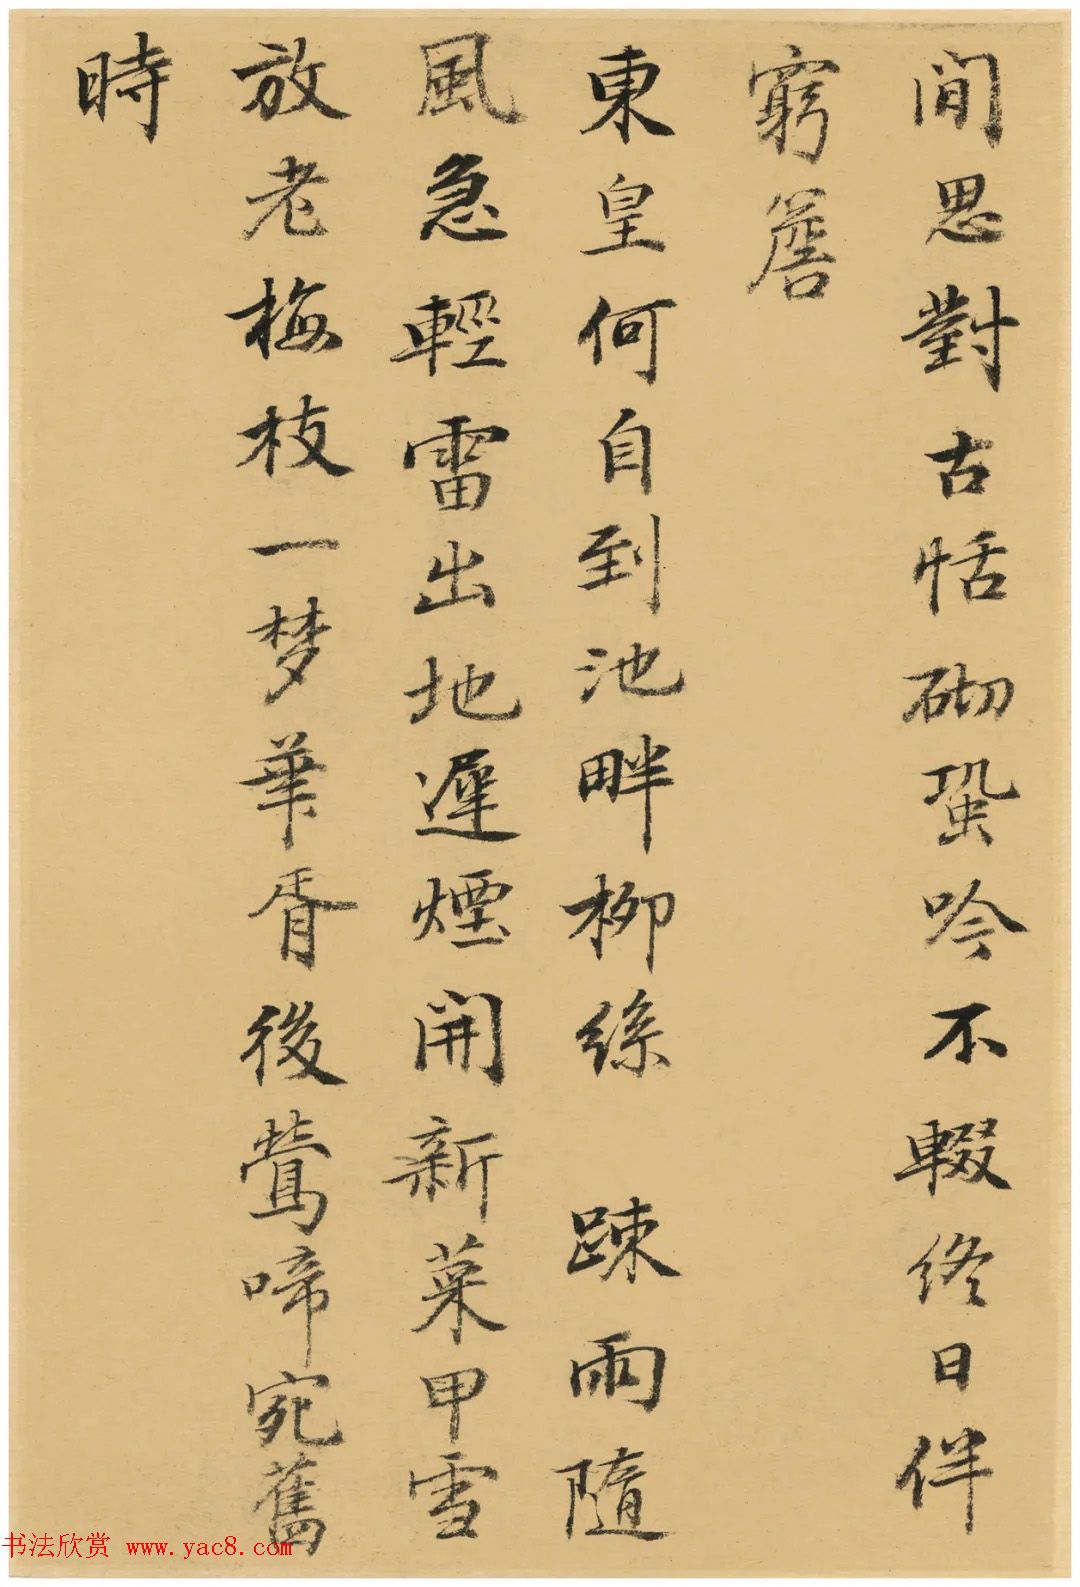 間思對古恬砌蛩吟不輟終日伴
窮簷
東皇何自到池畔柳絲 踈雨隨
風急輕雷出地遲煙開新菜甲雪
放老梅枝一梦華胥後鶯啼宛舊
時
书法欣赏 www.yac8.com